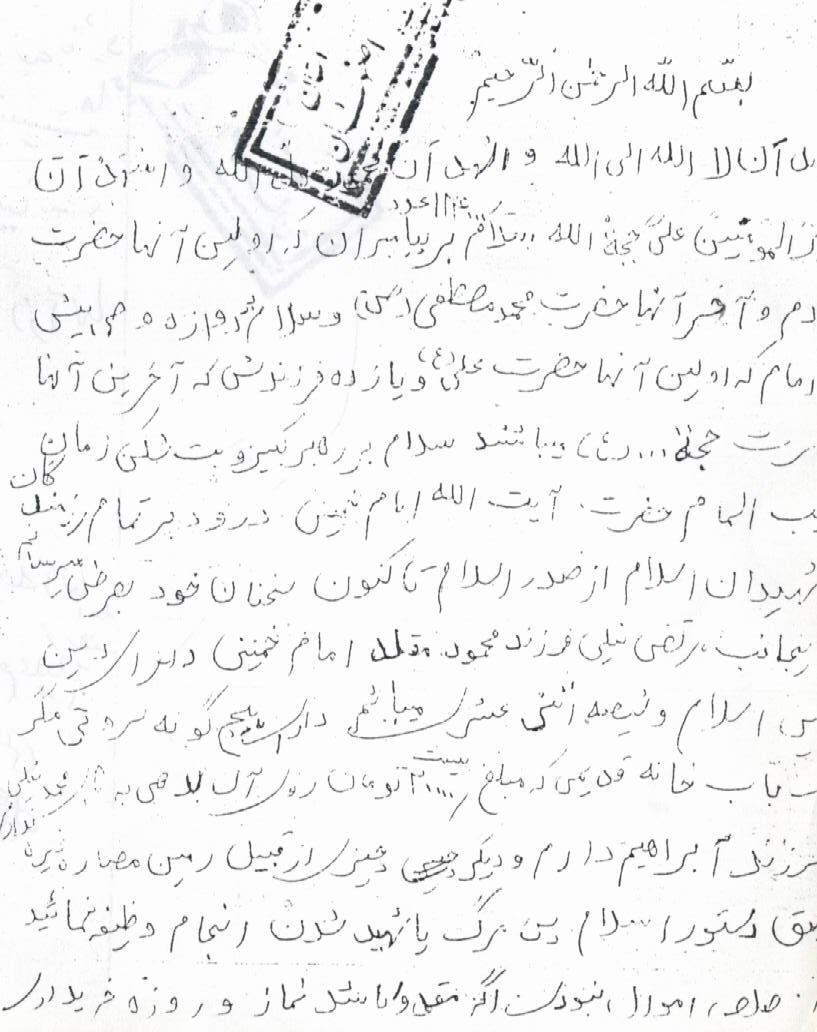 بسم الله الرحمن الرحیم
آن لا الله الی الله و اشهد آن محمد رسول الله و اشهد آن
المومنین علی حجة الله و سلام بر پیامبران که اولین آنها حضرت
دم و آخر آنها حضرت محمد مصطفی (ص) و سلام بر دوازده
امام که اولین آنها حضرت علی (ع) و یازده فرزندش که آخرین آنها
حجة ... (ع) میباشند سلام بر رهبر کبیر و بت شکن زمان
یب المام حضرت آیت الله امام خمینی درود بر تمام
هیدان اسلام از صدر اسلام تا کنون سخنان خود بعرض میرسانم
ینجانب مرتضی نیلی فرزند محمود مقلد امام خمینی دارای دین
اسلام و شیعه اثنی عشری میباشم دارای هیچ گونه ثروتی مگر
باب خانه قدیمی که مبلغ بیست تومان روی آن بدهی به محمد نیلی
فرزند ابراهیم دارم و دیگر چیزی از قبیل زمین مغازه غیره ندارم
دستور اسلام پس مرگ یا شهید شدن انجام وظیفه نمائید
اموال نبودن اگر نماز و روزه خریداری